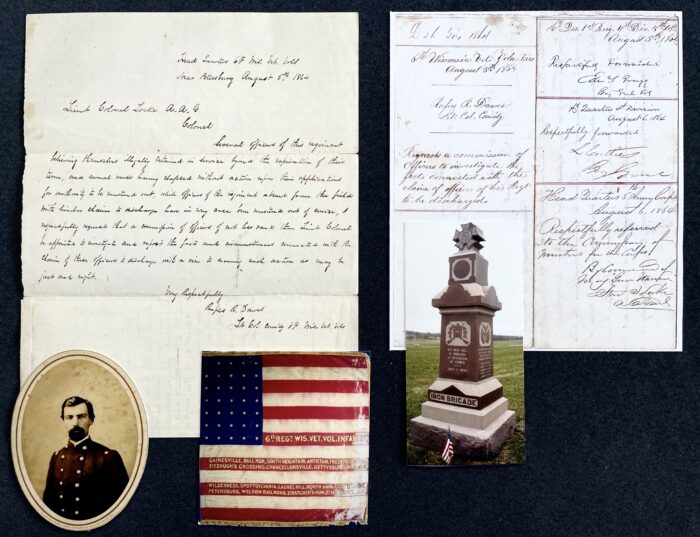 Head Quarters 6th Wis Vet Vols
Near Petersburg August 5th 1864
Lieut Colonel Locke A. A. G
Colonel
Several officers of this regiment
believing themselves illegally retained in service beyond the expiration of their
term, and several weeks having elapsed without action upon their applications
for authority to be mustered out, while officers of the regiment absent from the field
with similar claims to discharge have in every case been mustered out of service, I
respectfully request that a commission of officers of not less rank than Lieut Colonel
be appointed to investigate and report the facts and circumstances connected with the
claim of these officers to discharge with a view to such action as may be
just and right.
Very Respectfully
Rufus R. Dawes
Lt Col Comdg 6th Wis Vet Vols
1864
6th Wisconsin Vet. Volunteers
August 5th 1864
Rufus R. Dawes
Lt. Col. Comdg
Requests a commission of
Officers to investigate the
facts connected with the
claim of officers of his Regt
to be discharged.
1st Brig. 4th Div. 5th A.C.
August 5th 1864
Respectfully Forwarded
Hd Quarters 4th Division
August 6. 1864
Respectfully forwarded
Head Quarters 5th Army Corps
August 6. 1864
Respectfully referred
to the Commissary of
Musters for the Corps
By Command of
Maj Genl Warren
6TH REGT. WIS. VET. VOL. INFAN
GAINESVILLE, BULL RUN, SOUTH MOUNTAIN, ANTIETAM, FREDE
FITZHUGH'S CROSSING, CHANCELLORSVILLE, GETTYSBURG
WILDERNESS, SPOTTSYLVANIA, LAUREL HILL, NORTH ANNA
PETERSBURG, WELDON RAILROAD, HATCHER'S RUN
6TH WIS. INF.
1ST BRIGADE,
1ST DIVISION
1ST CORPS.
JULY 1, 1863.
IRON BRIGADE